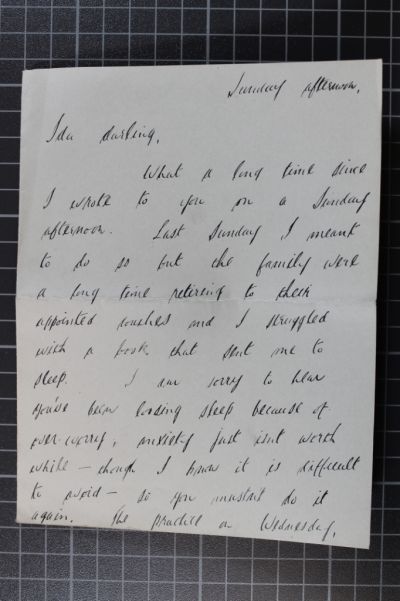 Sunday afternoon,
Ida darling,
What a long time since
I wrote to you on a Sunday
afternoon. Last Sunday I meant
to do so but the family were
a long time retiring to their
appointed couches and I struggled
with a book that sent me to
sleep. I am sorry to hear
you've been loosing sleep because of
over-worry, anxiety just isn't worth
while – though I know it is difficult
to avoid – so you mustnt do it
again. The practice on Wednesday,